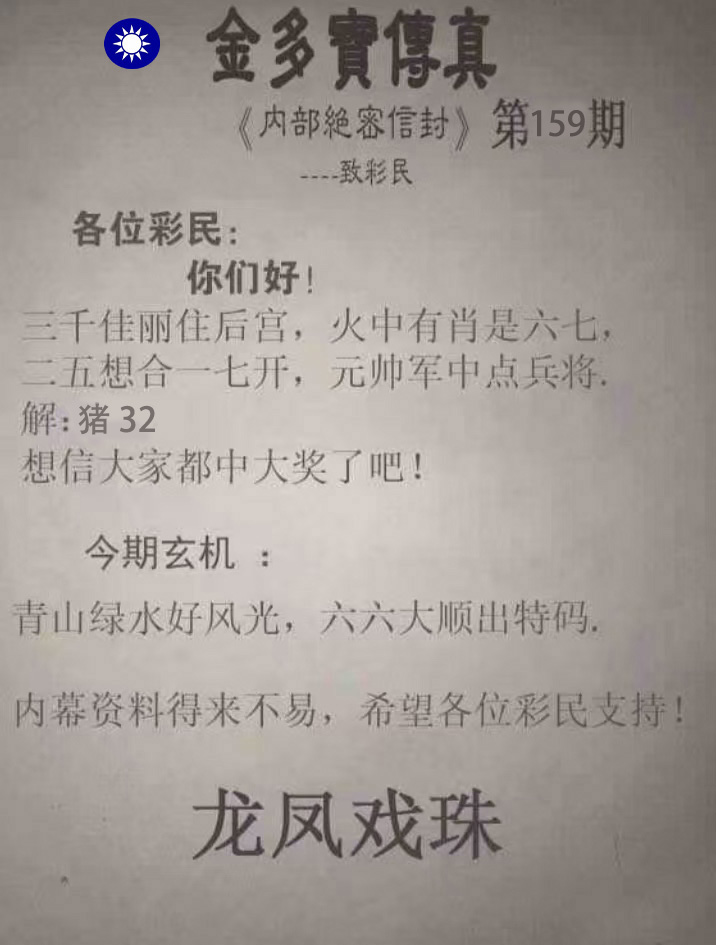 金多寶傳真
《内部絶密信封》第159期
----致彩民
各位彩民：
你们好！
三千佳丽住后宫，火中有肖是六七，
二五想合一七开，元帅军中点兵将.
解：猪 32
想信大家都中大奖了吧！
今期玄机 ：
青山绿水好风光，六六大顺出特码.
内幕资料得来不易，希望各位彩民支持！
龙凤戏珠